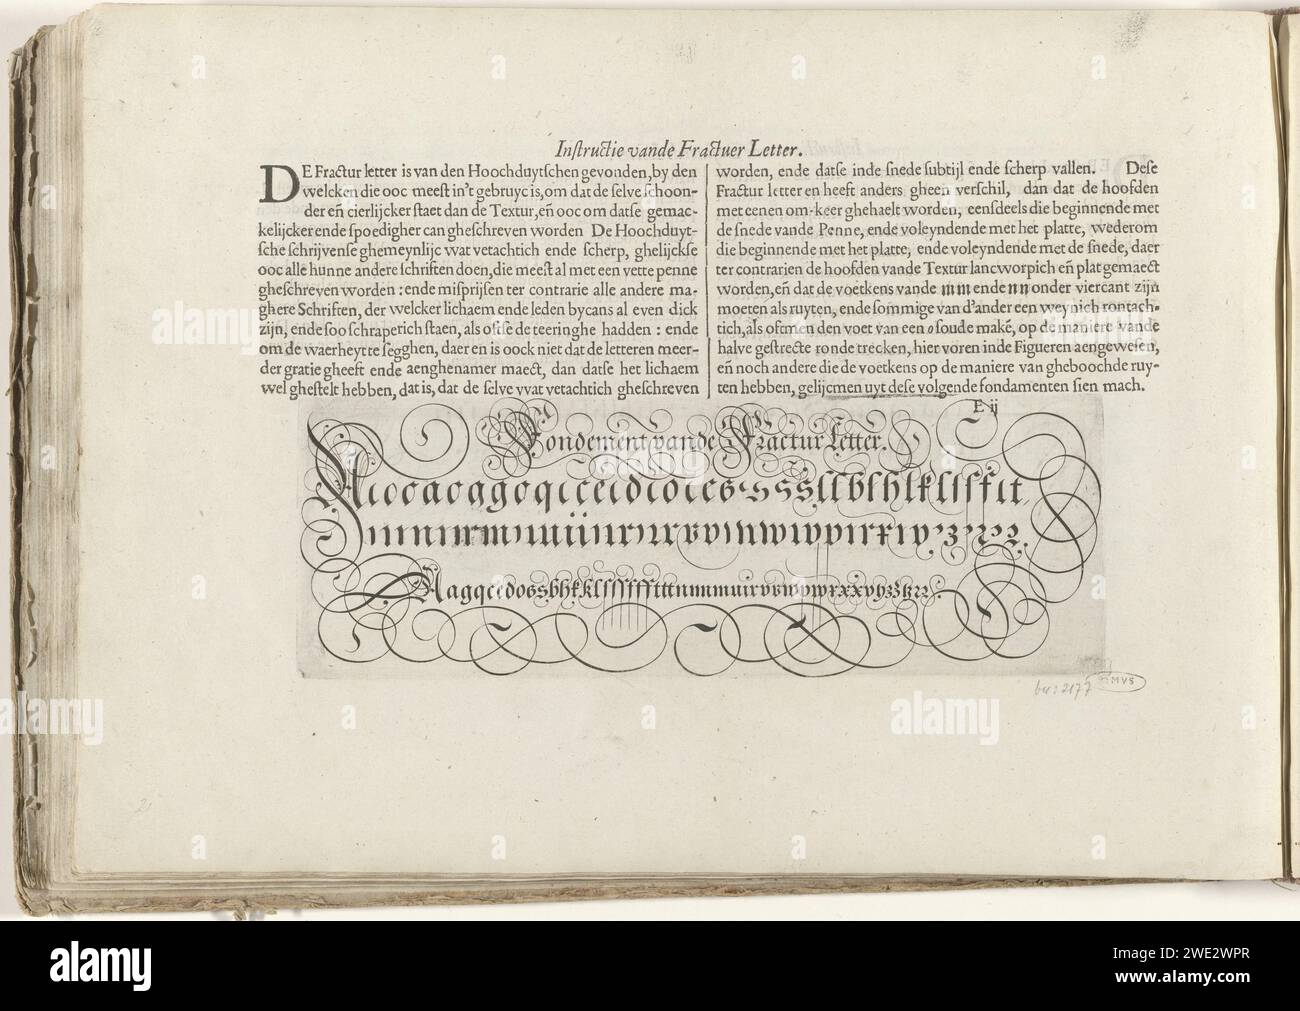 Inſtructie vande Fractuer Letter.
DE Fractur letter is van den Hoochduytſchen gevonden, by den
welcken die ooc meeſt in't gebruyc is, om dat de ſelve ſchoon-
der eñ cierlijcker ſtaet dan de Textur, eñ ooc om datſe gemac-
kelijcker ende ſpoedigher can gheſchreven worden De Hoochduyt-
ſche schrijvenſe ghemeynlijc wat vetachtich ende ſcherp, ghelijckſe
ooc alle hunne andere ſchriften doen, die meeſt al met een vette penne
gheſchreven worden : ende miſprijſen ter contrarie alle andere ma-
ghere Schriften, der welcker lichaem ende leden bycans al even dick
zijn, ende ſoo ſchraperich ſtaen, als oſſe de teeringhe hadden : ende
om de waerheyt te ſegghen, daer en is oock niet dat de letteren meer-
der gratie gheeft ende aenghenamer maect, dan datſe het lichaem
wel gheſtelt hebben, dat is, dat de ſelve vvat vetachtich gheſchreven
worden, ende datſe inde ſnede ſubtijl ende ſcherp vallen. Deſe
Fractur letter en heeft anders gheen verſchil, dan dat de hoofden
met eenen om-keer ghehaelt worden, eenſdeels die beginnende met
de ſnede vande Penne, ende voleyndende met het platte, wederom
die beginnende met het platte, ende voleyndende met de ſnede, daer
ter contrarien de hoofden vande Textur lancworpich eñ plat gemaect
worden, eñ dat de voetkens vande m m ende n n onder viercant zijn
moeten als ruyten, ende ſommige van d'ander een weynich rontach-
tich, als ofmen den voet van een o ſoude makē, op de maniere vande
halve geſtrecte ronde trecken, hier voren inde Figueren aengeweſen,
eñ noch andere die de voetkens op de maniere van gheboochde ruy-
ten hebben, gelijcmen uyt deſe volgende fondamenten ſien mach.
E ij
Fondement vande Fractur Letter.
bw: 2177
2WE2WPR
www.alamy.com
alamy